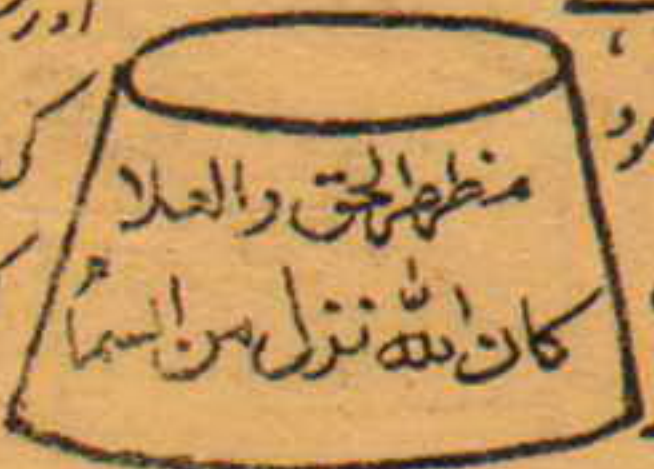 مظهر الحق والعلا
كان الله نزل من السماء